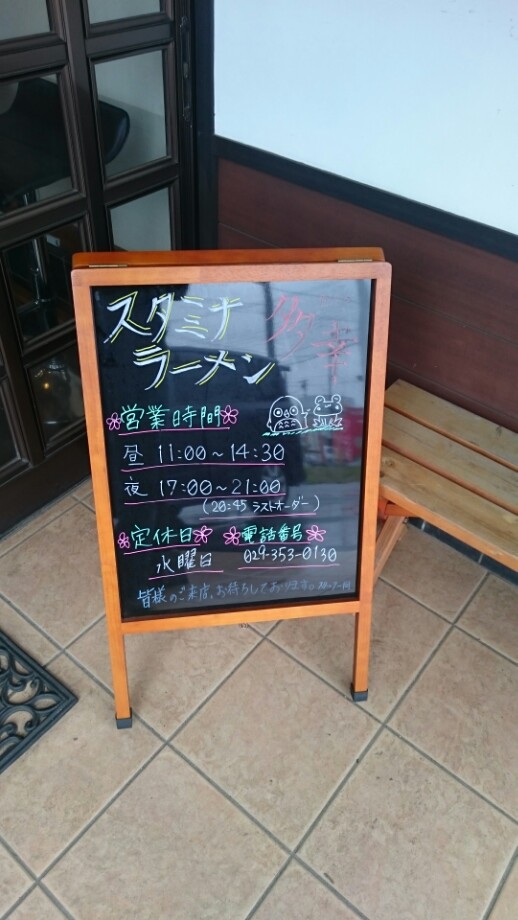 スタミナ
ラーメン
多幸
営業時間
昼 11:00～14:30
夜 17:00～21:00
(20:45 ラストオーダー)
定休日 電話番号
水曜日 029-353-0130
皆様のご来店、お待ちしております。